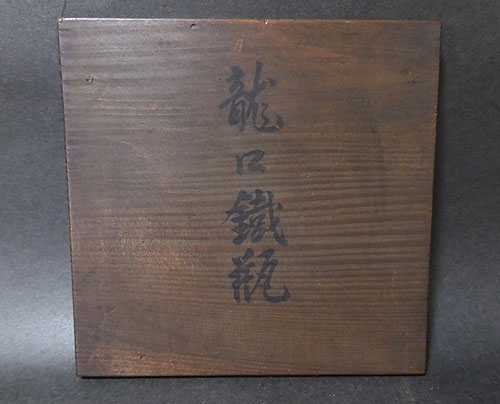 龍口鐵瓶